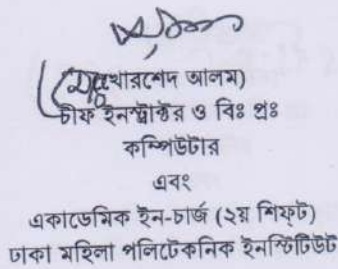 (মুঃ খোরশেদ আলম)
চীফ ইনস্ট্রাক্টর ও বিঃ প্রঃ
কম্পিউটার
এবং
একাডেমিক ইন-চার্জ (২য় শিফ্ট)
ঢাকা মহিলা পলিটেকনিক ইনস্টিটিউট